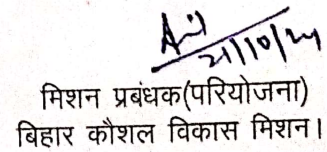 21/10/24
मिशन प्रबंधक(परियोजना)
बिहार कौशल विकास मिशन।